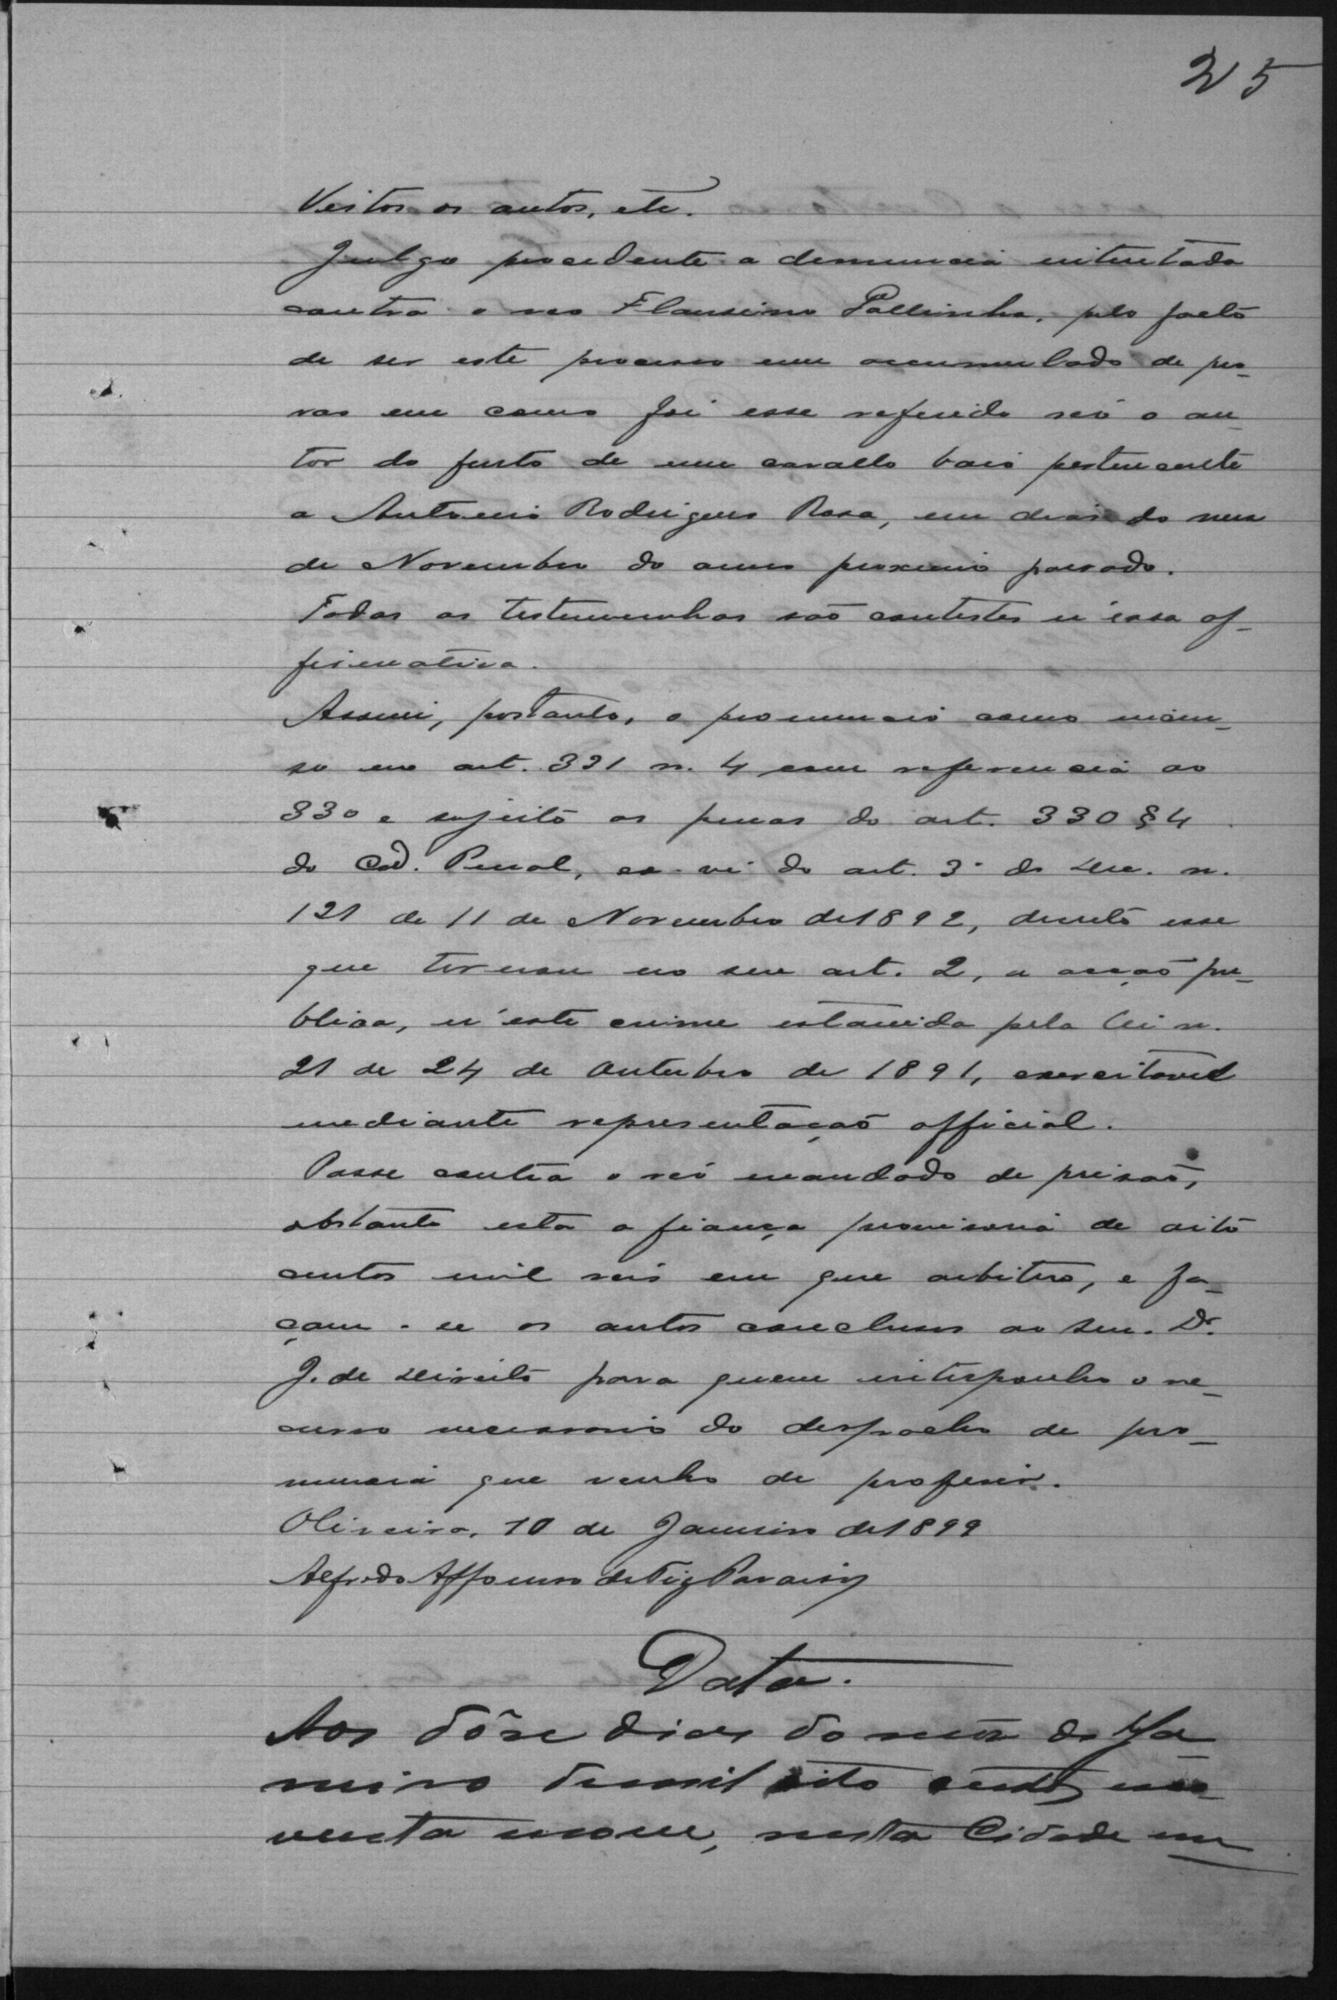 25
Vistos os autos, etc.
Julgo procedente a denuncia intentada
contra o reo Flausino Pallinha, pelo facto
de ser este processo um accumulado de pro-
vas em como foi esse referido réo o au-
tor do furto de um cavallo baio pertencente
a Antonio Rodrigues Rosa, em dias do mez
de Novembro do anno proximo passado.
Todas as testemunhas são contestes n'essa af-
firmativa.
Assim, portanto, o pronuncio como incur-
so no art. 331 n. 4 com referencia ao
330 e sujeito as penas do art. 330 § 4
do Cod. Penal, ex-vi do art. 3º do Dec. n.
121 de 11 de Novembro de 1892, decreto esse
que tornou no seu art. 2, a acção pu-
blica, n'este crime estatuida pela lei n.
21 de 24 de Outubro de 1891, exercitavel
mediante representação official.
Passe contra o réo mandado de prisão,
obstante esta a fiança provisoria de oito
centos mil reis em que arbitro, e fa-
çam-se os autos conclusos ao Snr. Dr.
J. de Direito para quem interponho o re-
curso necessario do despacho de pro-
nuncia que venho de proferir.
Oliveira, 10 de Janeiro de 1899
Alfredo Affonso de Fig Paraiso
Data.
Aos dôse dias do mez de Ja-
neiro de mil oito centos no-
venta nove, nesta Cidade em